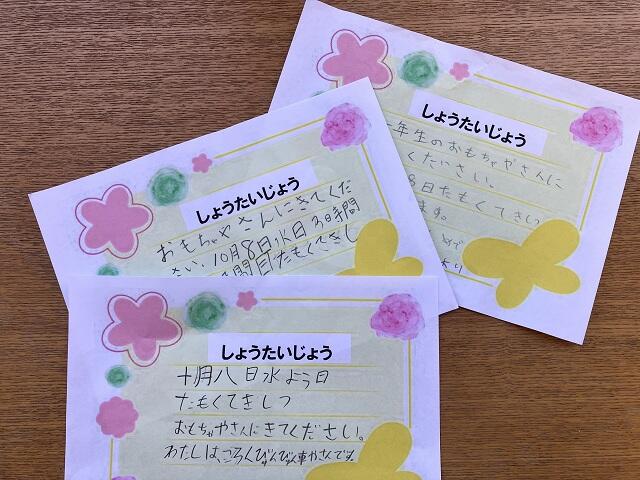 しょうたいじょう
年生のおもちゃやさんに
くださいさい。
8日たもくてきしつ
ます。
しょうたいじょう
おもちゃやさんにきてくだ
さい、10月8日水日3時間
しょうたいじょう
十月八日水よう日
たもくてきしつ
おもちゃやさんにきてください。
わたしは、ころくびゅんびゅん車やさんです。